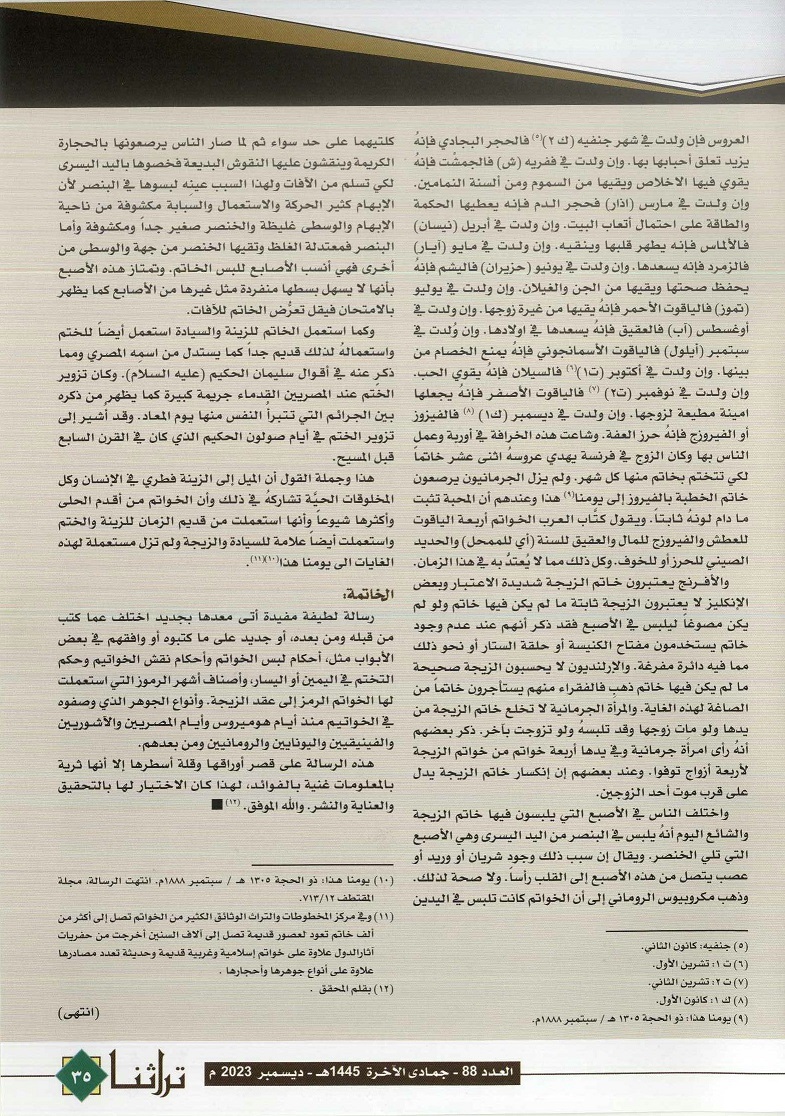 العروس فإن ولدت في شهر جنفيه (ك ٢)(٥) فالحجر البجادي فإنهُ
يزيد تعلق أحبابها بها. وإن ولدت في ففريه (ش) فالجمشُت فإنهُ
يقوي فيها الاخلاص ويقيها من السموم ومن ألسنة النمامين.
وإن ولدت في مارس (اذار) فحجر الدم فإنه يعطيها الحكمة
والطاقة على احتمال أتعاب البيت. وإن ولدت في أبريل (نيسان)
فالألماس فإنه يطهر قلبها وينقيه. وإن ولدت في مايو (آيار)
فالزمرد فإنه يسعدها. وإن ولدت في يونيو (حزيران) فاليشم فإنهُ
يحفظ صحتها ويقيها من الجن والغيلان. وإن ولدت في يوليو
(تموز) فالياقوت الأحمر فإنهُ يقيها من غيرة زوجها. وإن ولدت في
أوغسطس (آب) فالعقيق فإنهُ يسعدها في اولادها. وإن وُلدت في
سبتمبر (أيلول) فالياقوت الأسمانجوني فإنهُ يمنع الخصام من
بينها. وإن ولدت في أكتوبر (ت١)(٦) فالسيلان فإنهُ يقوي الحب.
وإن ولدت في نوفمبر (ت٢) (٧) فالياقوت الأصفر فإنهُ يجعلها
امينة مطيعة لزوجها. وإن ولدت في ديسمبر (ك١) (٨) فالفيزوز
أو الفيروزج فإنهُ حرز العفة. وشاعت هذه الخرافة في أوربة وعمل
الناس بها وكان الزوج في فرنسة يهدي عروسهُ اثنى عشر خاتماً
لكي تتختم بخاتم منها كل شهر. ولم يزل الجرمانيون يرصعون
خاتم الخطبة بالفيروز إلى يومنا(٩) هذا وعندهم أن المحبة تثبت
ما دام لونهُ ثابتاً. ويقول كتَّاب العرب الخواتم أربعة الياقوت
للعطش والفيروزج للمال والعقيق للسنة (أي للممحل) والحديد
الصيني للحرز أو للخوف. وكل ذلك مما لا يُعتدُّ به في هذا الزمان.
والأفرنج يعتبرون خاتم الزيجة شديدة الاعتبار وبعض
الإنكليز لا يعتبرون الزيجة ثابتة ما لم يكن فيها خاتم ولو لم
يكن مصوغاً ليلبس في الأصبع فقد ذكر أنهم عند عدم وجود
خاتم يستخدمون مفتاح الكنيسة أو حلقة الستار أو نحو ذلك
مما فيه دائرة مفرغة. والارلنديون لا يحسبون الزيجة صحيحة
ما لم يكن فيها خاتم ذهب فالفقراء منهم يستأجرون خاتماً من
الصاغة لهذه الغاية. والمرأة الجرمانية لا تخلع خاتم الزيجة من
يدها ولو مات زوجها وقد تلبسهُ ولو تزوجت بآخر. ذكر بعضهم
أنهُ رأى امرأة جرمانية وفي يدها أربعة خواتم من خواتم الزيجة
لأربعة أزواج توفوا. وعند بعضهم إن إنكسار خاتم الزيجة يدل
على قرب موت أحد الزوجين.
واختلف الناس في الأصبع التي يلبسون فيها خاتم الزيجة
والشائع اليوم أنهُ يلبس في البنصر من اليد اليسرى وهي الأصبع
التي تلي الخنصر. ويقال إن سبب ذلك وجود شريان أو وريد أو
عصب يتصل من هذه الأصبع إلى القلب رأساً. ولا صحة لذلك.
وذهب مكروبيوس الروماني إلى أن الخواتم كانت تلبس في اليدين
(٥) جنفيه: كانون الثاني.
(٦) ت ١: تشرين الأول.
(٧) ت ٢: تشرين الثاني.
(٨) ك ١: كانون الأول.
(٩) يومنا هذا: ذو الحجة ١٣٠٥ هـ / سبتمبر ١٨٨٨م.
كلتيهما على حد سواء ثم لما صار الناس يرصعونها بالحجارة
الكريمة وينقشون عليها النقوش البديعة فخصوها باليد اليسرى
لكي تسلم من الآفات ولهذا السبب عينه لبسوها في البنصر لأن
الإبهام كثير الحركة والاستعمال والسبابة مكشوفة من ناحية
الإبهام والوسطى غليظة والخنصر صغير جداً ومكشوفة وأما
البنصر فمعتدلة الغلظ وتقيها الخنصر من جهة والوسطى من
أخرى فهي أنسب الأصابع للبس الخاتم. وتمتاز هذه الأصبع
بأنها لا يسهل بسطها منفردة مثل غيرها من الأصابع كما يظهر
بالامتحان فيقل تعرُّض الخاتم للآفات.
وكما استعمل الخاتم للزينة والسيادة استعمل أيضاً للختم
واستعمالهُ لذلك قديم جداً كما يستدل من اسمه المصري ومما
ذكر عنه في أقوال سليمان الحكيم (عليه السلام). وكان تزوير
الختم عند المصريين القدماء جريمة كبيرة كما يظهر من ذكره
بين الجرائم التي تتبرأُ النفس منها يوم المعاد. وقد أُشير إلى
تزوير الختم في أيام صولون الحكيم الذي كان في القرن السابع
قبل المسيح.
هذا وجملة القول أن الميل إلى الزينة فطري في الإنسان وكل
المخلوقات الحيَّة تشاركهُ في ذلك وأن الخواتم من أقدم الحلى
وأكثرها شيوعاً وأنها استعملت من قديم الزمان للزينة والختم
واستعملت أيضاً علامة للسيادة والزيجة ولم تزل مستعملة لهذه
الغايات الى يومنا هذا(١٠)(١١).
الخاتمة:
رسالة لطيفة مفيدة أتى معدها بجديد اختلف عما كتب
من قبله ومن بعده، أو جديد على ما كتبوه أو وافقهم في بعض
الأبواب مثل، أحكام لبس الخواتم وأحكام نقش الخواتيم وحكم
التختم في اليمين أو اليسار، وأصناف أشهر الرموز التي استعملت
لها الخواتم الرمز إلى عقد الزيجة. وأنواع الجوهر الذي وصفوه
في الخواتيم منذ أيام هوميروس وأيام المصريين والآشوريين
والفينيقيين واليونايين والرومانيين ومن بعدهم.
هذه الرسالة على قصر أوراقها وقلة أسطرها إلا أنها ثرية
بالمعلومات غنية بالفوائد، لهذا كان الاختيار لها بالتحقيق
والعناية والنشر. والله الموفق. (١٢) ■
(١٠) يومنا هذا: ذو الحجة ١٣٠٥ هـ / سبتمبر ١٨٨٨م. انتهت الرسالة، مجلة
المقتطف ٧١٣/١٢.
(١١) وفي مركز المخطوطات والتراث الوثائق الكثير من الخواتم تصل إلى أكثر من
ألف خاتم تعود لعصور قديمة تصل إلى آلاف السنين أخرجت من حفريات
آثار الدول علاوة على خواتم إسلامية وغربية قديمة وحديثة تعدد مصادرها
علاوة على أنواع جوهرها وأحجارها .
(١٢) بقلم المحقق .
(انتهى)
العدد 88 - جمادى الآخرة 1445هـ - ديسمبر 2023 م
تراثنا
٣٥